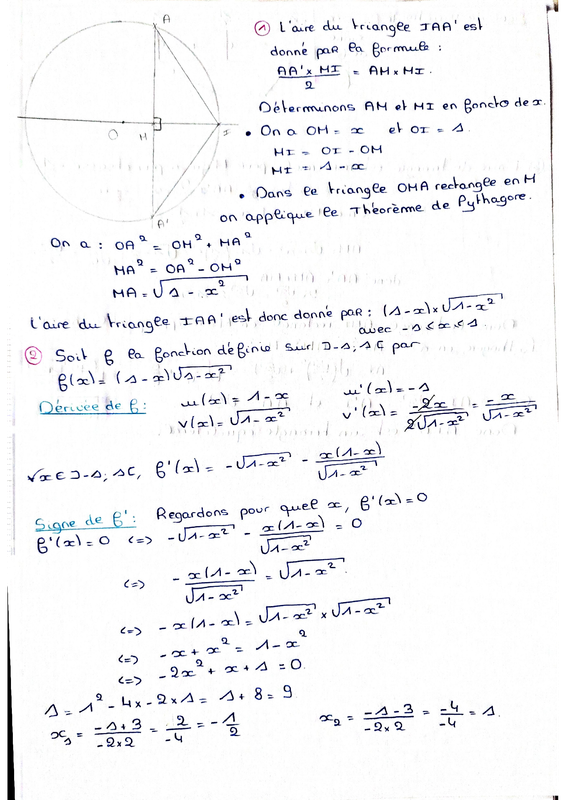 A
① L'aire du triangle IAA' est
donné par la formule :
AA' × MI / 2 = AM × MI.
Déterminons AM et MI en foncto de x.
O M I
• On a OM = x et OI = 1.
MI = OI - OM
MI = 1 - x
• Dans le triangle OMA rectangle en M
A'
on applique le Théorème de Pythagore.
On a : OA² = OM² + MA²
MA² = OA² - OM²
MA = √(1 - x²)
L'aire du triangle IAA' est donc donné par : (1-x) × √(1-x²)
avec -1 < x < 1
② Soit f la fonction définie sur ]-1; 1[ par
f(x) = (1-x)√(1-x²)
Dérivée de f : u(x) = 1-x u'(x) = -1
v(x) = √(1-x²) v'(x) = -2x / 2√(1-x²) = -x / √(1-x²)
∀x ∈ ]-1; 1[, f'(x) = -√(1-x²) - x(1-x) / √(1-x²)
Signe de f' : Regardons pour quel x, f'(x) = 0
f'(x) = 0 <=> -√(1-x²) - x(1-x) / √(1-x²) = 0
<=> - x(1-x) / √(1-x²) = √(1-x²).
<=> -x(1-x) = √(1-x²) × √(1-x²)
<=> -x + x² = 1 - x²
<=> -2x² + x + 1 = 0.
Δ = 1² - 4 × -2 × 1 = 1 + 8 = 9
x₁ = -1+3 / -2×2 = 2 / -4 = - 1/2 x₂ = -1-3 / -2×2 = -4 / -4 = 1.